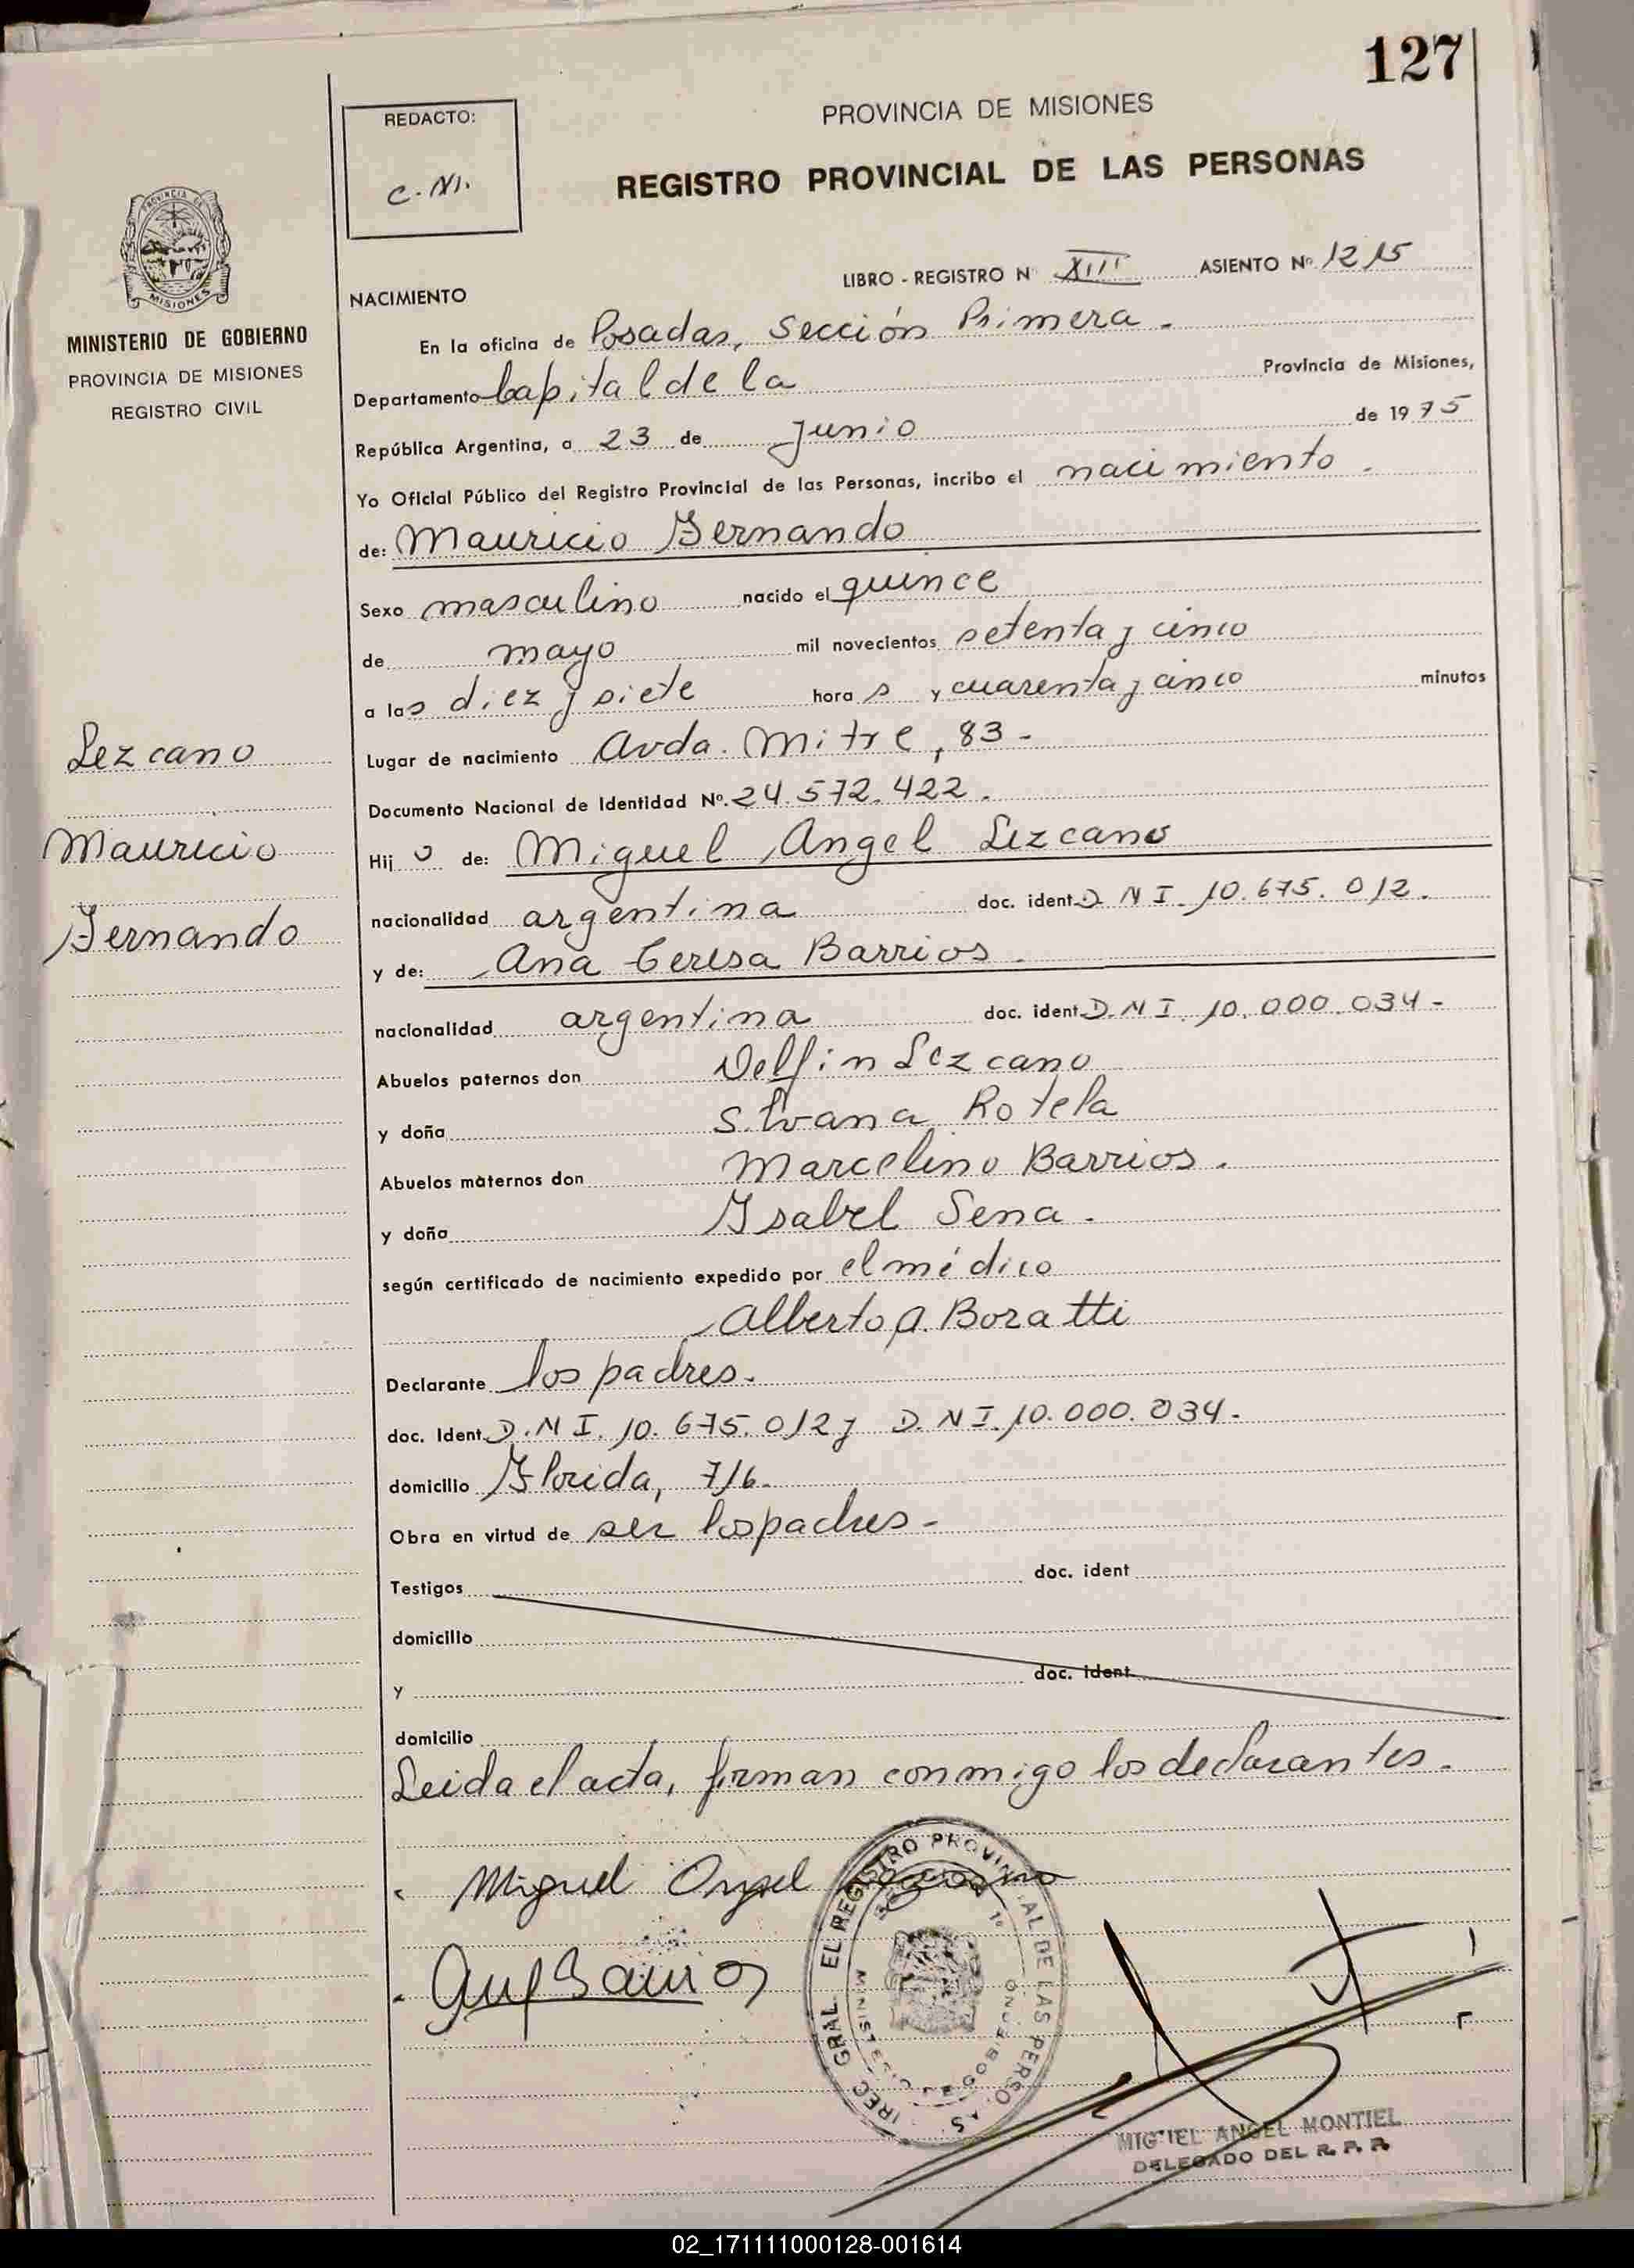 127
REDACTO:
C. M.
PROVINCIA DE MISIONES
REGISTRO PROVINCIAL DE LAS PERSONAS
PROVINCIA DE
MISIONES
MINISTERIO DE GOBIERNO
PROVINCIA DE MISIONES
REGISTRO CIVIL
LIBRO - REGISTRO Nº XIII ASIENTO Nº 1215
NACIMIENTO
En la oficina de Posadas, Sección Primera.
Departamento Capital de la Provincia de Misiones,
República Argentina, a 23 de Junio de 1975
Yo Oficial Público del Registro Provincial de las Personas, incribo el nacimiento.
de: Mauricio Fernando
Sexo masculino nacido el quince
de mayo mil novecientos setenta y cinco
a las diez y siete horas y cuarenta y cinco minutos
Lugar de nacimiento Avda. Mitre, 83-
Documento Nacional de Identidad Nº. 24.572.422.
Hijo de: Miguel Angel Lezcano
nacionalidad argentina doc. ident D N I. 10.675.012.
y de: Ana Teresa Barrios.
nacionalidad argentina doc. ident D. N I. 10.000.034-
Abuelos paternos don Delfin Lezcano
y doña Silvana Rotela
Abuelos maternos don Marcelino Barrios.
y doña Isabel Sena.
según certificado de nacimiento expedido por el médico
Alberto A. Boratti
Declarante los padres.
doc. Ident D. N I. 10.675.012 y D. N I. 10.000.034-
domicilio Florida, 716.
Obra en virtud de ser los padres-
Testigos doc. ident
domicilio
y doc. ident
domicilio
Leida el acta, firman conmigo los declarantes.
Lezcano
Mauricio
Fernando
Miguel Angel Lezcano
DIREC. GRAL. EL REGISTRO PROVINCIAL DE LAS PERSONAS
MINISTERIO DE GOBIERNO
MIGUEL ANGEL MONTIEL
DELEGADO DEL R. P. P.
02_171111000128-001614